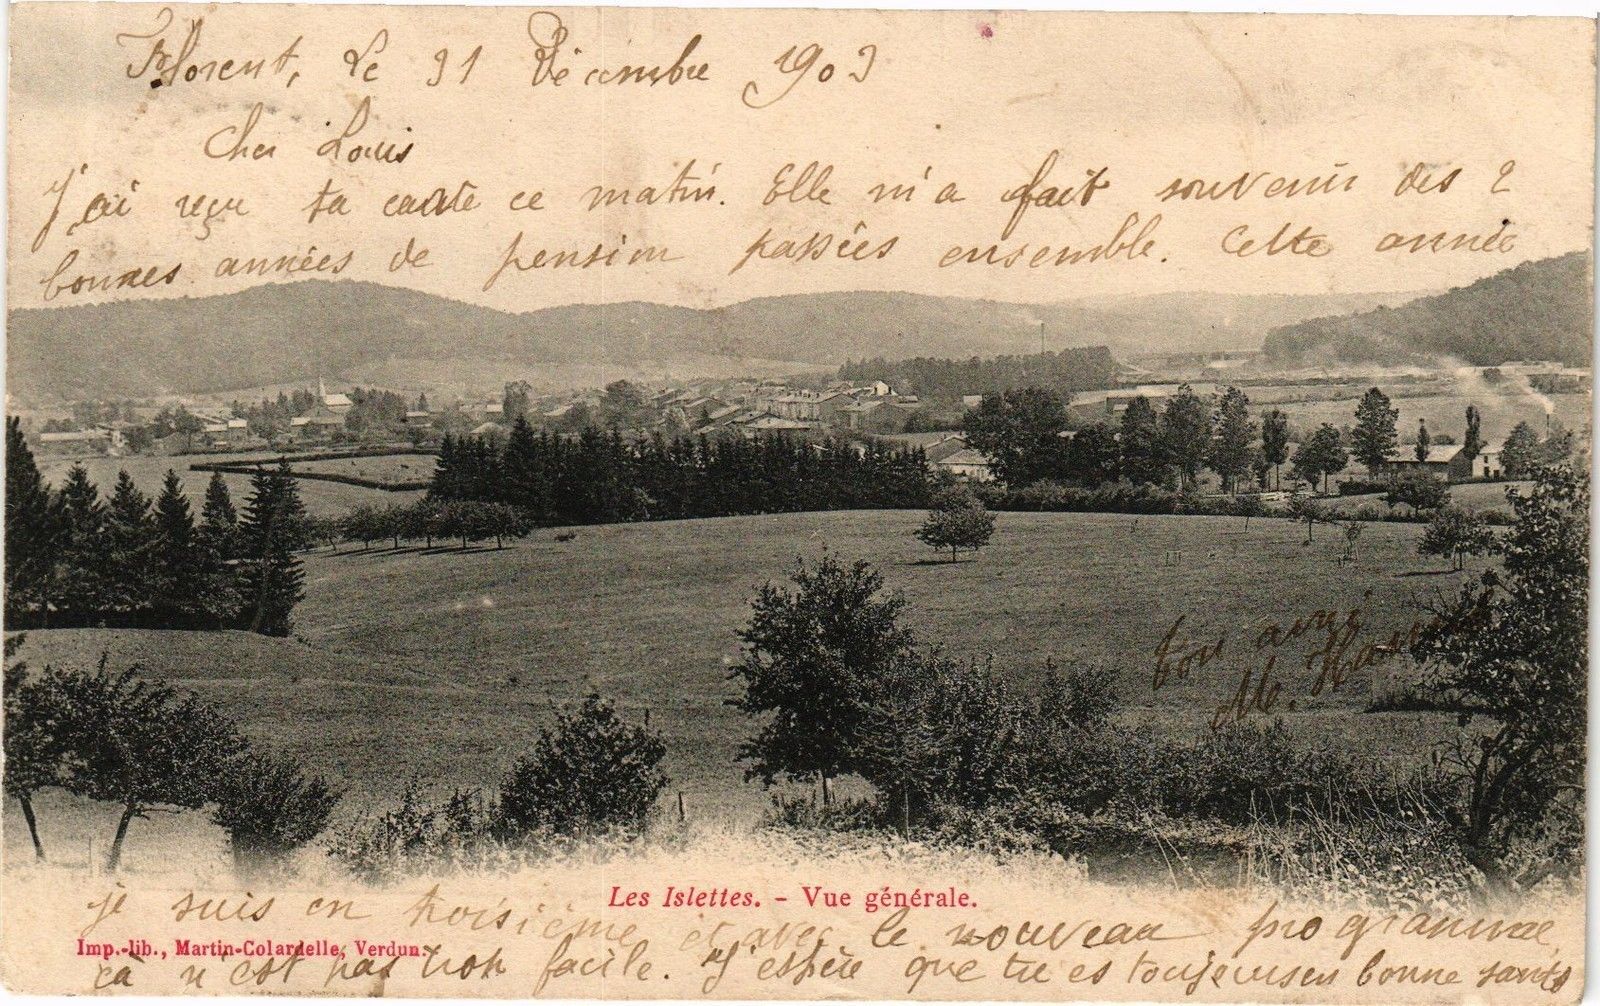 Florent, Le 31 Décembre 1903
Cher Louis
J'ai reçu ta carte ce matin. Elle m'a fait souvenir des 2
bonnes années de pension passées ensemble. Cette année
ton ami
M.
Les Islettes. - Vue générale.
je suis en troisième et avec le nouveau programme
Imp.-lib., Martin-Colardelle, Verdun.
ça n'est pas trop facile. J'espère que tu es toujours en bonne santé